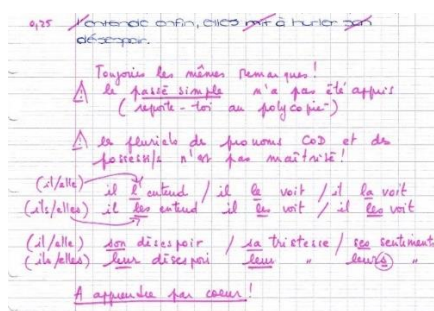 0,25 l'entende enfin, elles mir à hurler son
désespoir.
Toujours les mêmes remarques!
⚠ le passé simple n'a pas été appris
(reporte-toi au polycopié)
⚠ les pluriels de pronoms COD et des
possessifs n'est pas maîtrisé!
(il/elle) il l'entend / il le voit / il la voit
(ils/elles) il les entend il les voit / il les voit
(il/elle) son désespoir / sa tristesse / ses sentiments
(ils/elles) leur désespoir leur " leurs "
A apprendre par coeur!